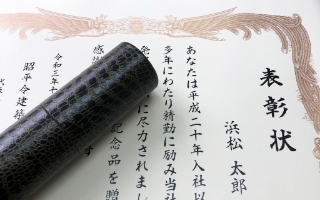 表彰状
浜松 太郎
あなたは平成二十年入社以
多年にわたり精勤に励み当社
発
に尽力されまし
記念品を贈
感
す
令和三年十
昭平令建築